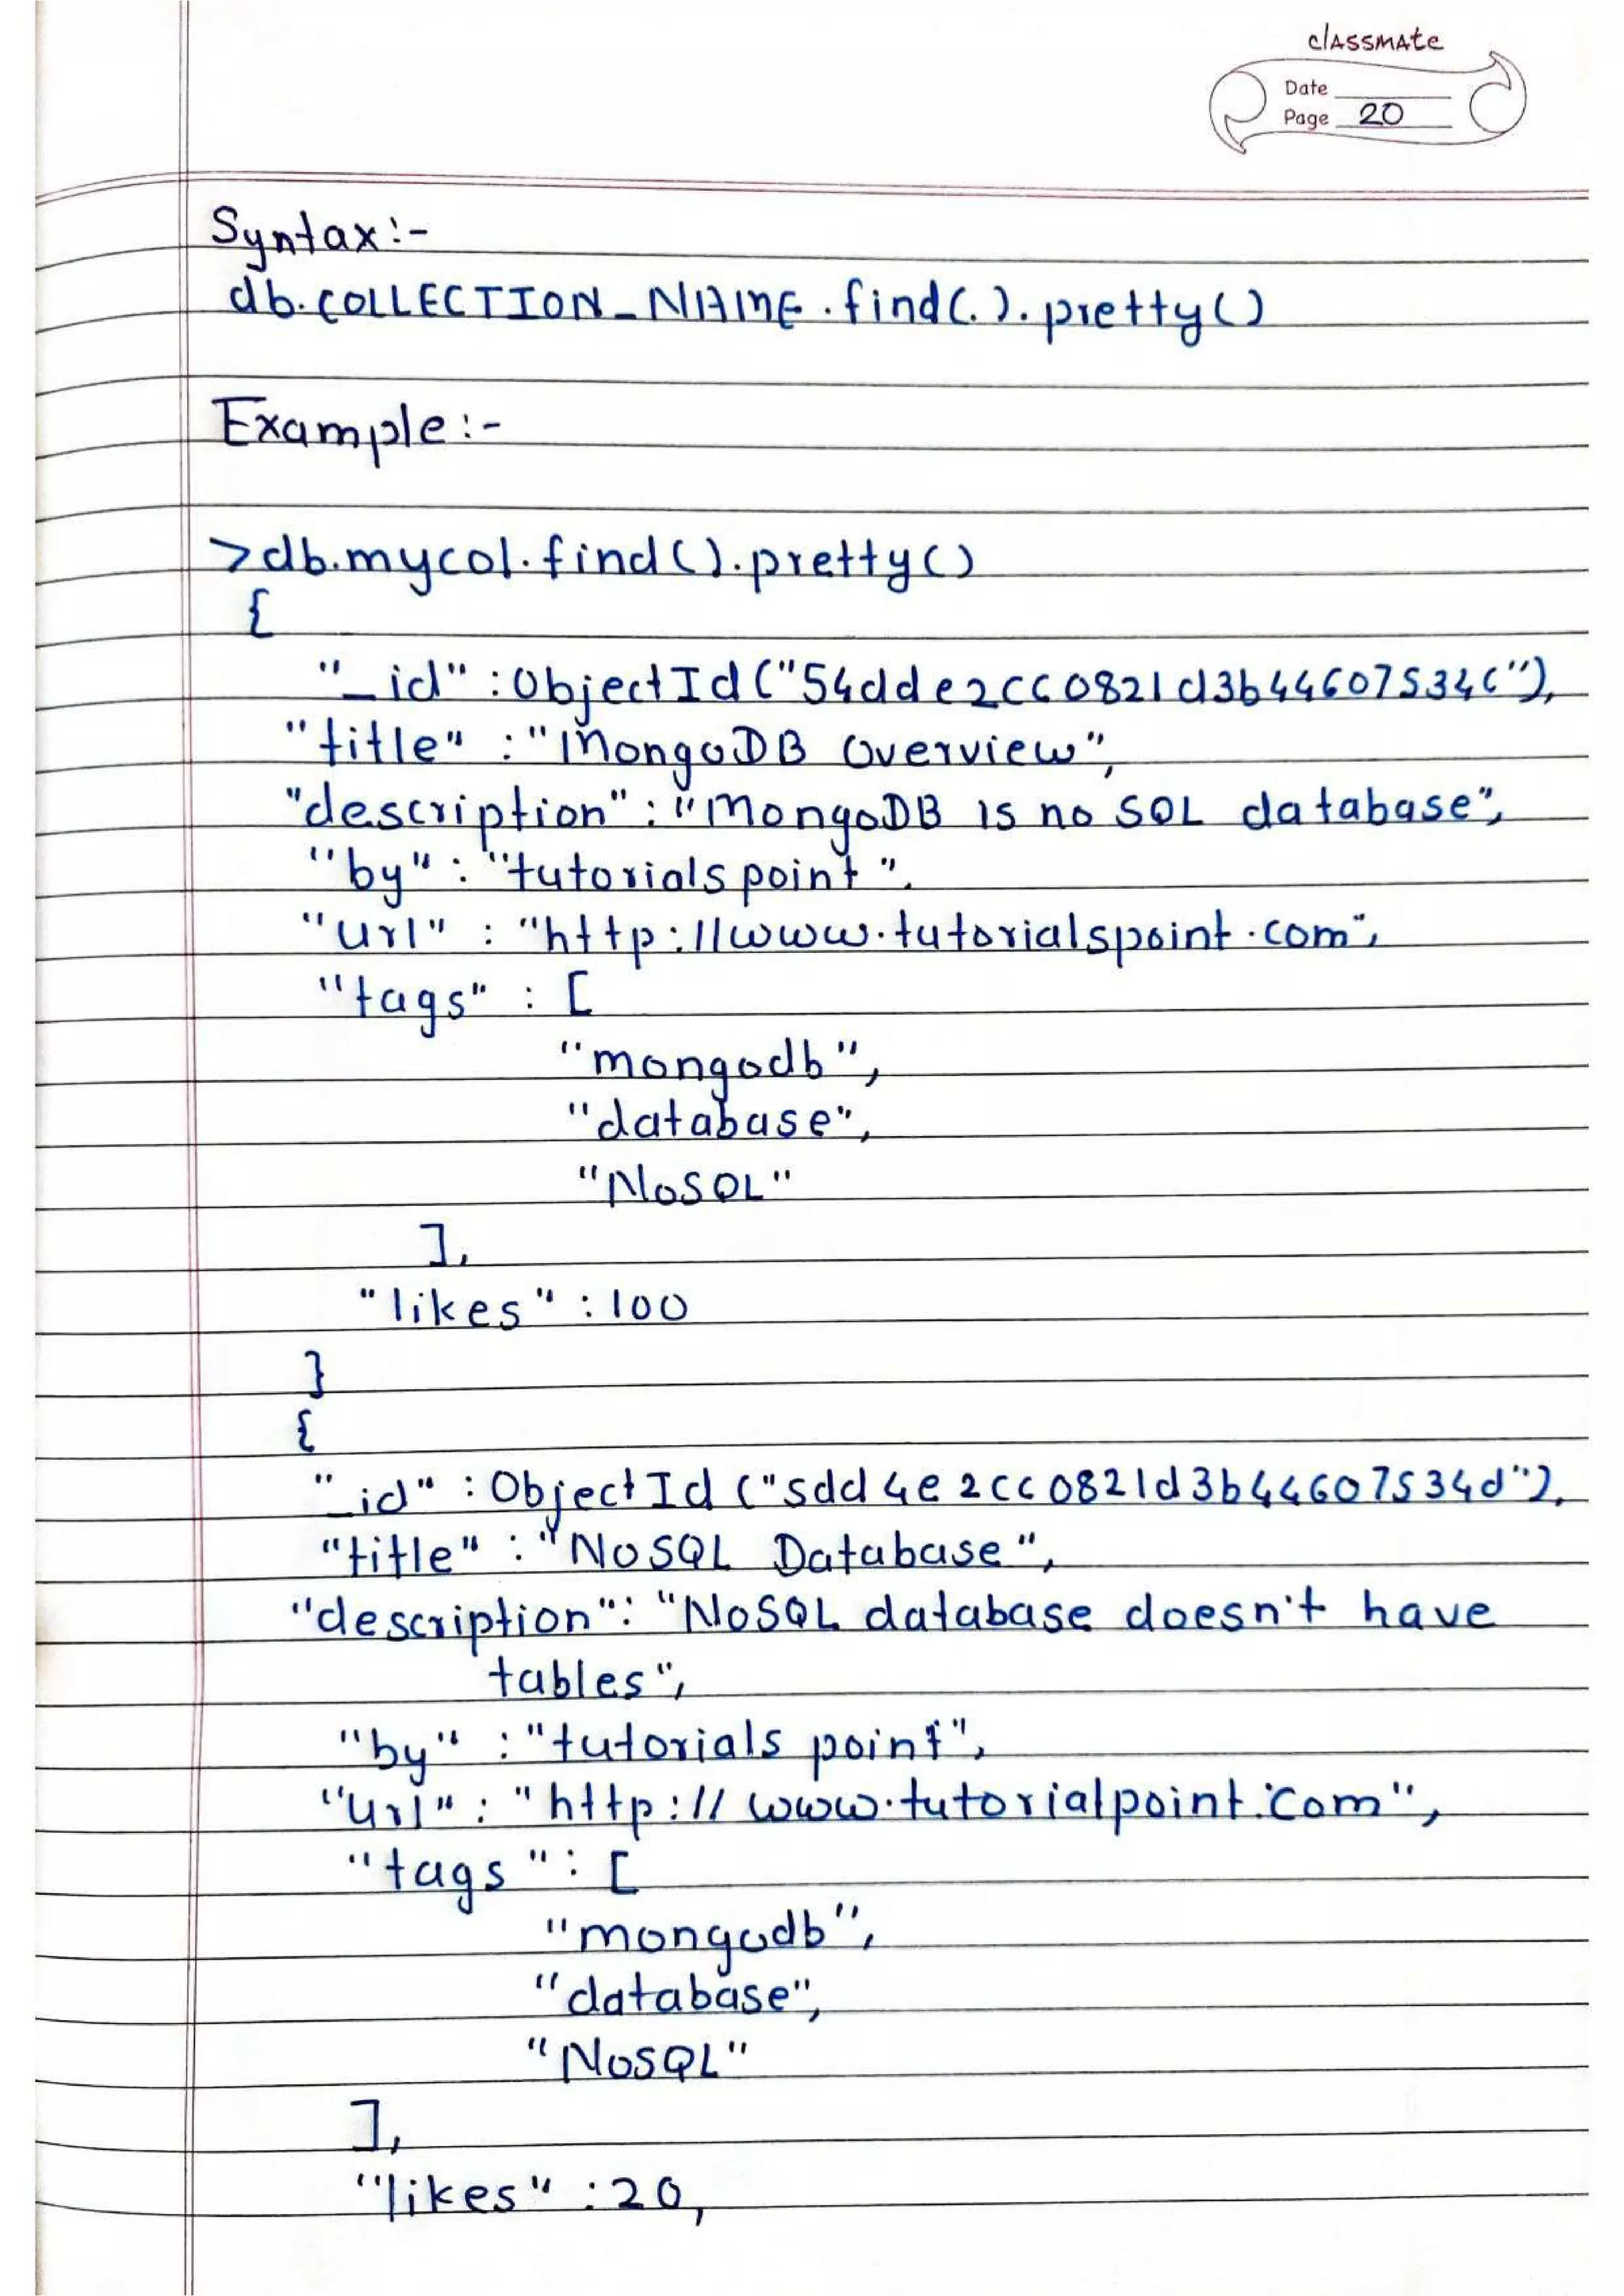 classmate
Date
Page 20
Syntax:-
db.COLLECTION_NAME.find(.).pretty()
Example:-
>db.mycol.find().pretty()
{
"_id" : ObjectId("54dde2cc0821d3b44607534c"),
"title" : "MongoDB Overview",
"description" : "MongoDB is no SQL database",
"by" : "tutorials point".
"url" : "http://www.tutorialspoint.com",
"tags" : [
"mongodb",
"database",
"NoSQL"
],
"likes" : 100
}
{
"_id" : ObjectId ("5dd4e2cc0821d3b44607534d"),
"title" : "NoSQL Database",
"description": "NoSQL database doesn't have
tables",
"by" : "tutorials point",
"url" : "http://www.tutorialpoint.com",
"tags" : [
"mongodb",
"database",
"NoSQL"
],
"likes" : 20,